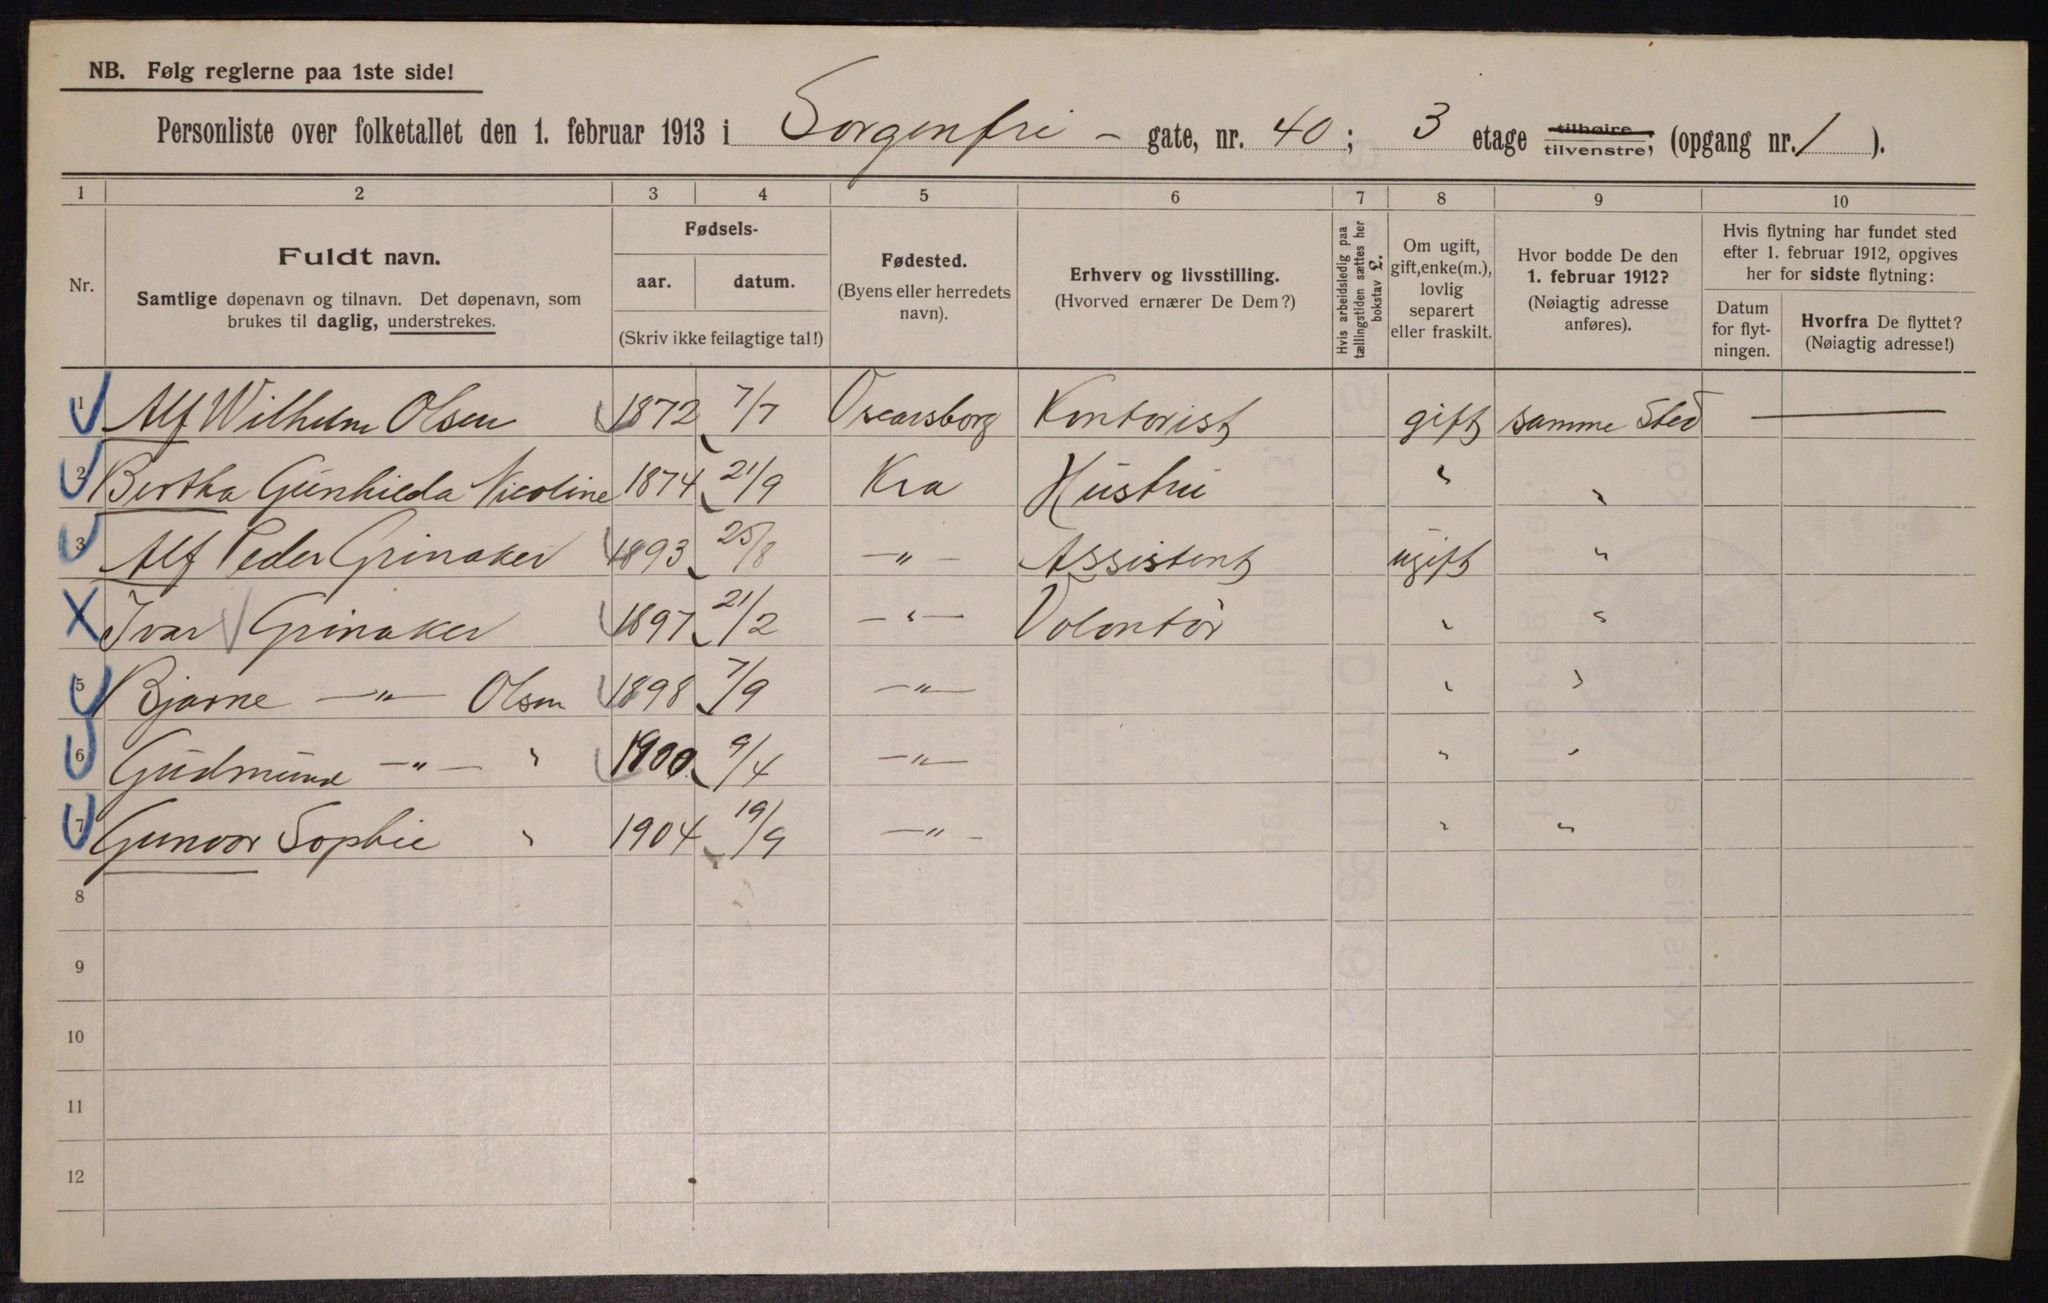 NB. Følg reglerne paa 1ste side!
Personliste over folketallet den 1. februar 1913 i Sorgenfri - gate, nr. 40; 3 etage tilhøire, tilvenstre, (opgang nr. 1 ).
1 2 3 4 5 6 7 8 9 10
Nr.
Fuldt navn.
Samtlige døpenavn og tilnavn. Det døpenavn, som
brukes til daglig, understrekes.
Fødsels-
aar. datum.
(Skriv ikke feilagtige tal!)
Fødested.
(Byens eller herredets
navn).
Erhverv og livsstilling.
(Hvorved ernærer De Dem?)
Hvis arbeidsledig paa
tællingstiden sættes her
bokstav L.
Om ugift,
gift, enke(m.),
lovlig
separert
eller fraskilt.
Hvor bodde De den
1. februar 1912?
(Nøiagtig adresse
anføres).
Hvis flytning har fundet sted
efter 1. februar 1912, opgives
her for sidste flytning:
Datum
for flyt-
ningen.
Hvorfra De flyttet?
(Nøiagtig adresse!)
1 Alf Wilhelm Olsen 1872 7/7 Oscarsborg Kontorist gift samme Sted —
2 Bertha Gunhilda Nicoline 1874 21/9 Kra Hustru " "
3 Alf Peder Grinaker 1893 25/8 — " — Assistent ugift "
Ivar Grinaker 1897 21/2 — " — Volontør " "
5 Bjarne — " — Olsen 1898 7/9 — " — " "
6 Gudmund — " — " 1900 9/4 — " — " "
7 Gunvor Sophie " 1904 19/9 — " — " "
8
9
10
11
12